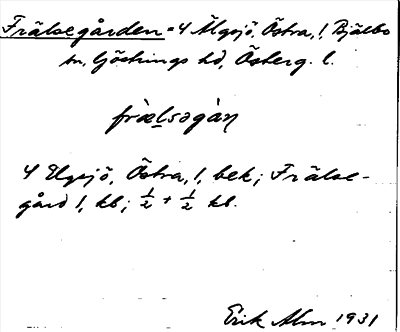 Frälsegården = 4 Älgsjö, Östra, !, Bjälbo
sn, Göstrings hd, Österg. l.
fràlsəgàɳ
4 Elgsjö, Östra, !, bek; Frälse-
gård !, kb; ½ + ½ kb.
Erik Alm 1931